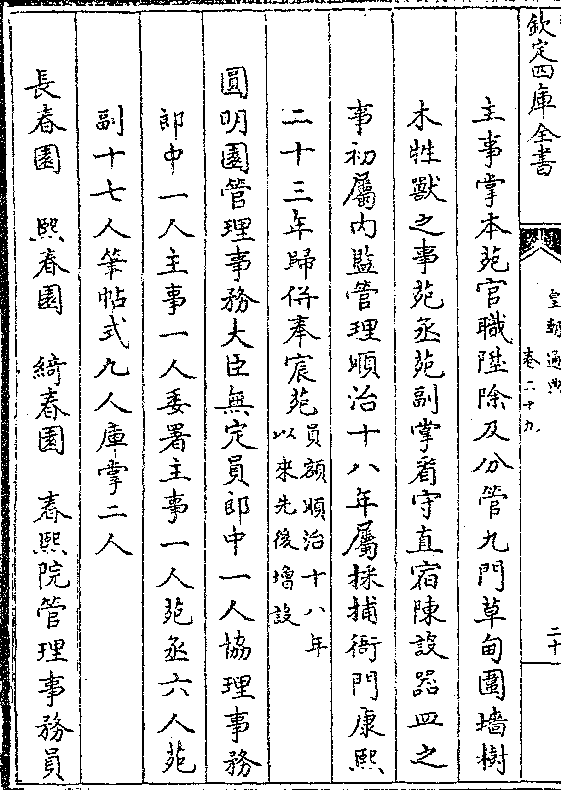 欽定四庫全書
皇朝通典
卷二十九
二十
主事掌本苑官職陞除及分管九門草甸圍墻樹
木牲獸之事苑丞苑副掌看守直宿陳設器皿之
事初屬內監管理順治十八年屬採捕衙門康熙
二十三年歸併奉宸苑員額順治十八年以來先後增設
圓明園管理事務大臣無定員郎中一人協理事務
郎中一人主事一人委署主事一人苑丞六人苑
副十七人筆帖式九人庫掌二人
長春園 熙春園 綺春園 春熙院管理事務員